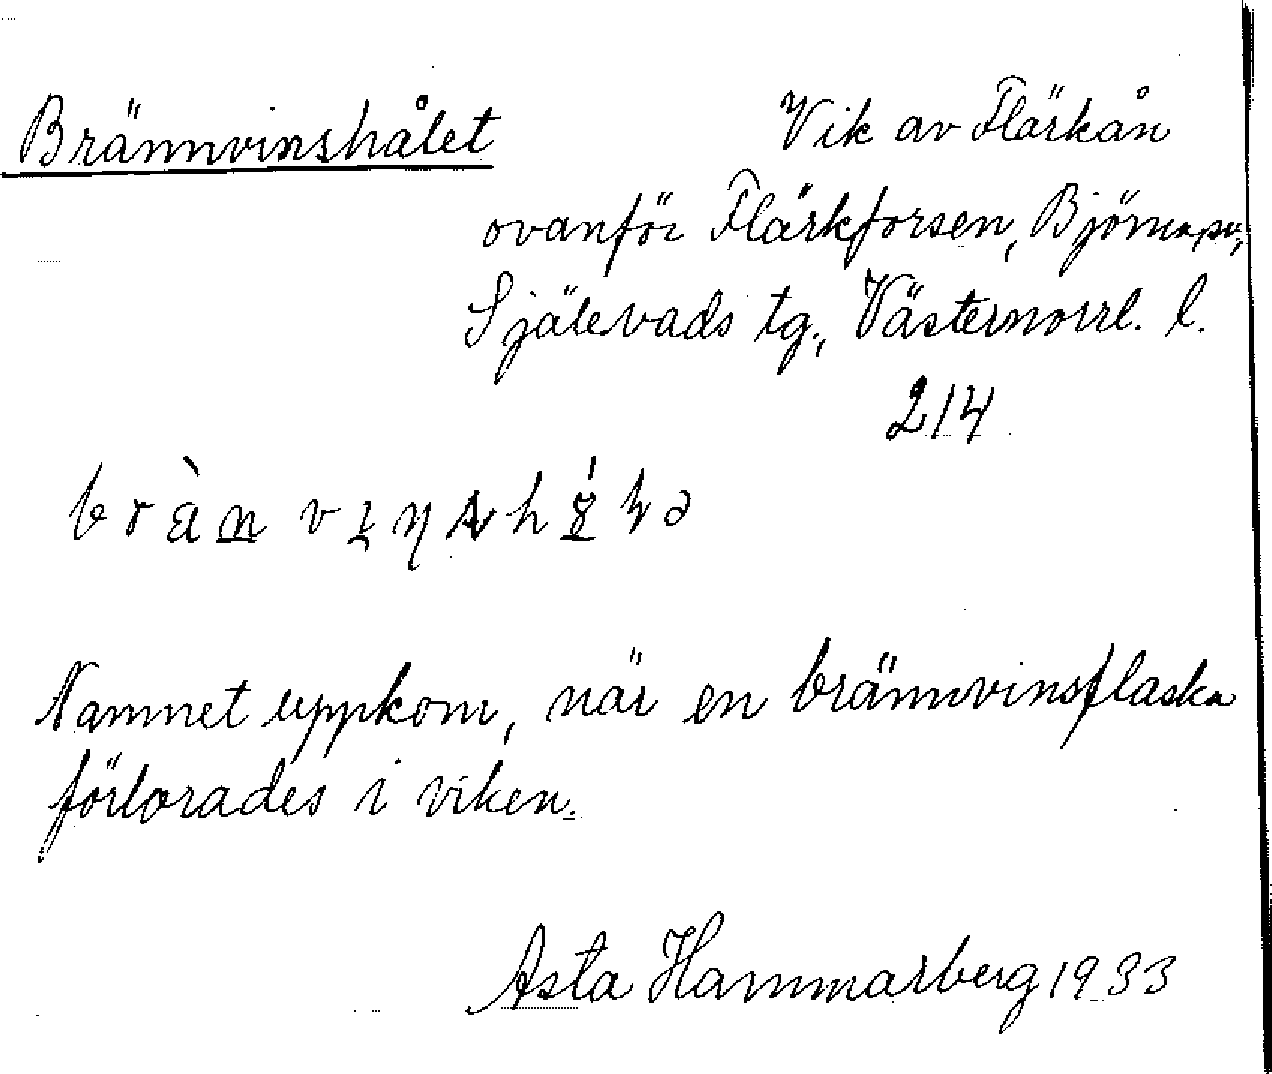 Brännvinshålet Vik av Flärkån
ovanför Flärkforsen, Björna sn,
Själevads tg., Västernorrl. l.
214
Namnet uppkom, när en brännvinsflaska
förlorades i viken.
Asta Hammarberg 1933